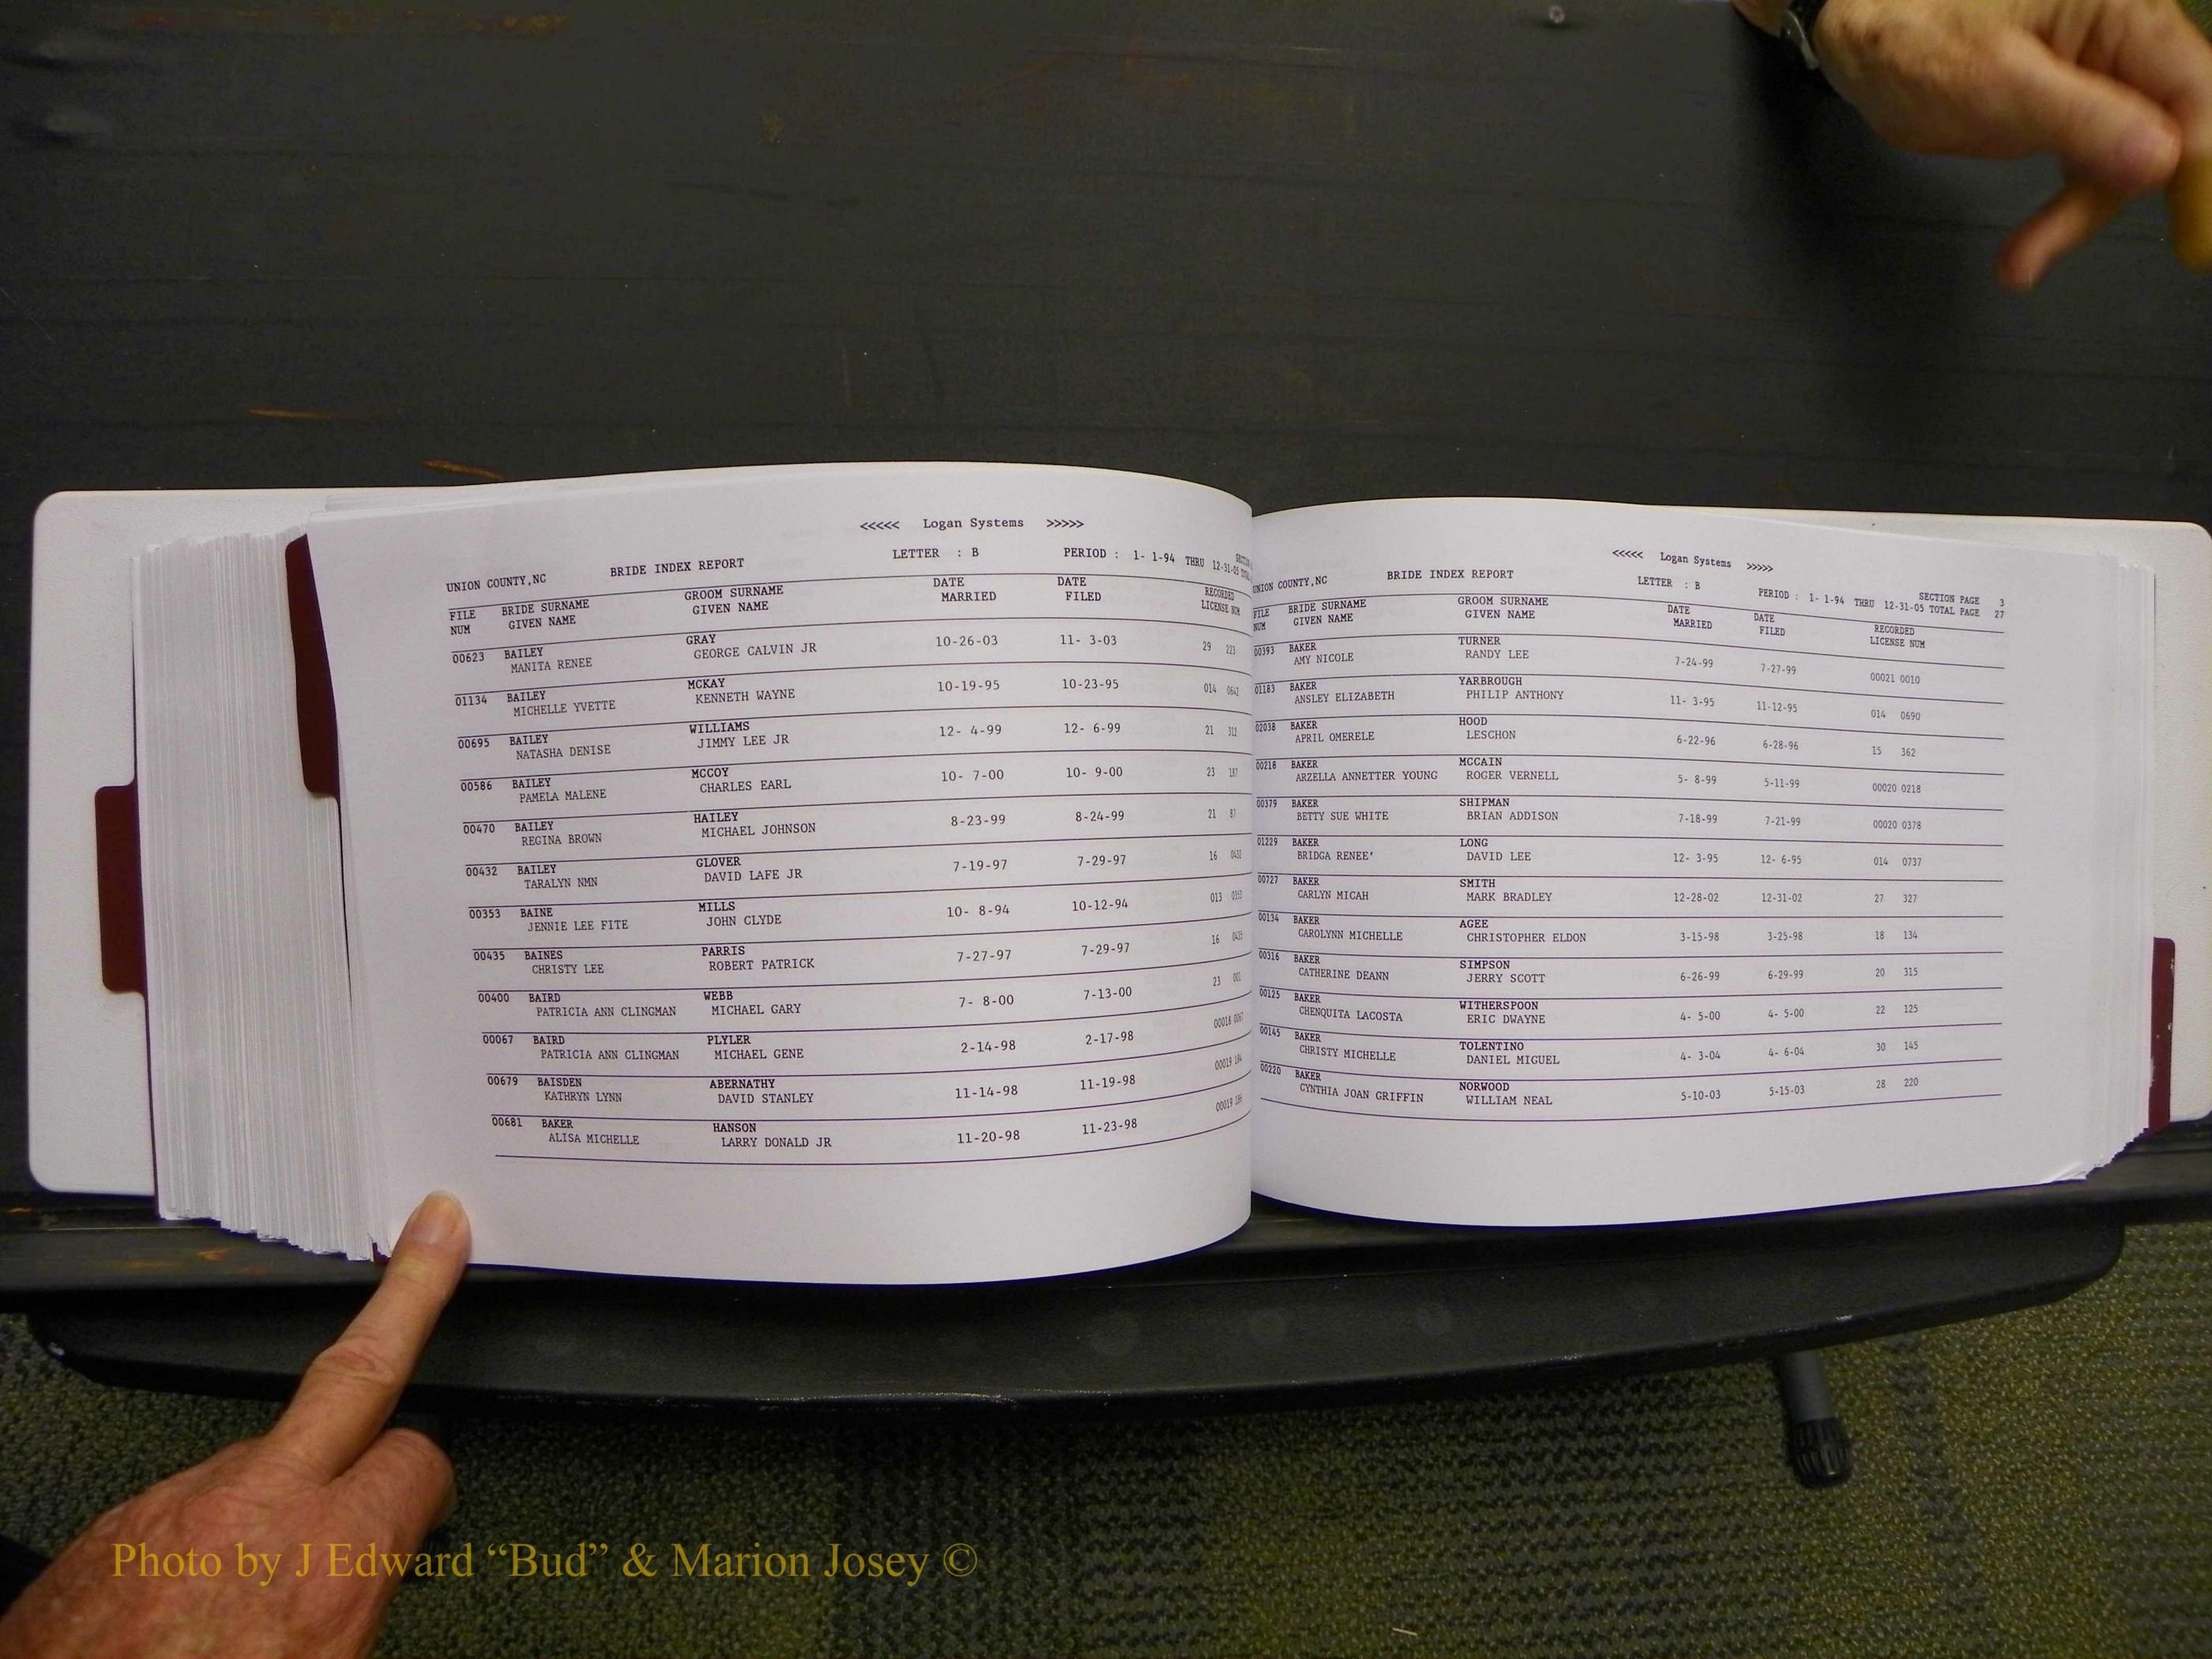 <<<<< Logan Systems >>>>>
UNION COUNTY,NC BRIDE INDEX REPORT LETTER : B PERIOD : 1- 1-94 THRU 12-31-05
FILE BRIDE SURNAME GROOM SURNAME DATE DATE RECORDED
NUM GIVEN NAME GIVEN NAME MARRIED FILED LICENSE NUM
00623 BAILEY GRAY 10-26-03 11- 3-03 29 223
MANITA RENEE GEORGE CALVIN JR
01134 BAILEY MCKAY 10-19-95 10-23-95 014
MICHELLE YVETTE KENNETH WAYNE
00695 BAILEY WILLIAMS 12- 4-99 12- 6-99 21
NATASHA DENISE JIMMY LEE JR
00586 BAILEY MCCOY 10- 7-00 10- 9-00 23
PAMELA MALENE CHARLES EARL
00470 BAILEY HAILEY 8-23-99 8-24-99 21
REGINA BROWN MICHAEL JOHNSON
00432 BAILEY GLOVER 7-19-97 7-29-97 16
TARALYN NMN DAVID LAFE JR
00353 BAINE MILLS 10- 8-94 10-12-94 013
JENNIE LEE FITE JOHN CLYDE
00435 BAINES PARRIS 7-27-97 7-29-97 16
CHRISTY LEE ROBERT PATRICK
00400 BAIRD WEBB 7- 8-00 7-13-00 23
PATRICIA ANN CLINGMAN MICHAEL GARY
00067 BAIRD PLYLER 2-14-98 2-17-98 00018 0067
PATRICIA ANN CLINGMAN MICHAEL GENE
00679 BAISDEN ABERNATHY 11-14-98 11-19-98 00019 184
KATHRYN LYNN DAVID STANLEY
00681 BAKER HANSON 11-20-98 11-23-98 00019 186
ALISA MICHELLE LARRY DONALD JR
<<<<< Logan Systems >>>>>
UNION COUNTY,NC BRIDE INDEX REPORT LETTER : B SECTION PAGE 3
PERIOD : 1- 1-94 THRU 12-31-05 TOTAL PAGE 27
FILE BRIDE SURNAME GROOM SURNAME DATE DATE RECORDED
NUM GIVEN NAME GIVEN NAME MARRIED FILED LICENSE NUM
00393 BAKER TURNER 7-24-99 7-27-99 00021 0010
AMY NICOLE RANDY LEE
01183 BAKER YARBROUGH 11- 3-95 11-12-95 014 0690
ANSLEY ELIZABETH PHILIP ANTHONY
02038 BAKER HOOD 6-22-96 6-28-96 15 362
APRIL OMERELE LESCHON
00218 BAKER MCCAIN 5- 8-99 5-11-99 00020 0218
ARZELLA ANNETTER YOUNG ROGER VERNELL
00379 BAKER SHIPMAN 7-18-99 7-21-99 00020 0378
BETTY SUE WHITE BRIAN ADDISON
01229 BAKER LONG 12- 3-95 12- 6-95 014 0737
BRIDGA RENEE' DAVID LEE
00727 BAKER SMITH 12-28-02 12-31-02 27 327
CARLYN MICAH MARK BRADLEY
00134 BAKER AGEE 3-15-98 3-25-98 18 134
CAROLYNN MICHELLE CHRISTOPHER ELDON
00316 BAKER SIMPSON 6-26-99 6-29-99 20 315
CATHERINE DEANN JERRY SCOTT
00125 BAKER WITHERSPOON 4- 5-00 4- 5-00 22 125
CHENQUITA LACOSTA ERIC DWAYNE
00145 BAKER TOLENTINO 4- 3-04 4- 6-04 30 145
CHRISTY MICHELLE DANIEL MIGUEL
00220 BAKER NORWOOD 5-10-03 5-15-03 28 220
CYNTHIA JOAN GRIFFIN WILLIAM NEAL
Photo by J Edward “Bud” & Marion Josey ©